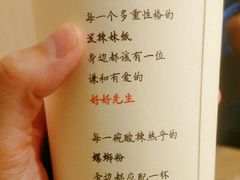 每一个多重性格的
泼辣妹纸
身边都该有一位
谦和有爱的
好好先生
每一碗酸辣热乎的
螺蛳粉
旁边都应配一杯